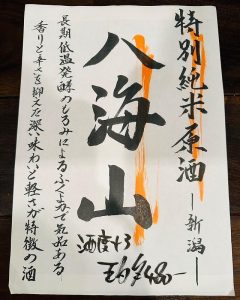 特別純米原酒
―新潟―
八海山
酒度+3
長期低温発酵のもろみによるふくよかで気品ある
香りと辛さを抑えた深い味わいと軽さが特徴の酒